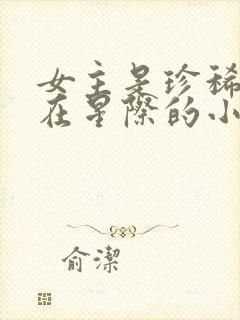 女主是珍稀
在星際的小
俞潔